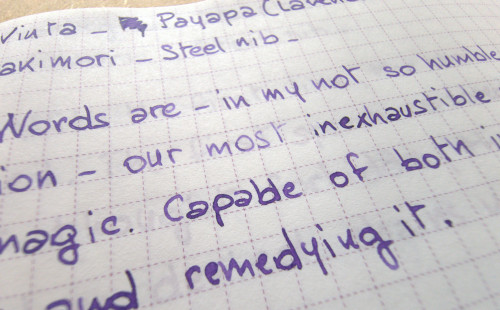 Vinta - Payapa (Laven
akimori - Steel nib -
Words are - in my not so humble
ion - our most inexhaustible
magic. Capable of both i
and remedying it.